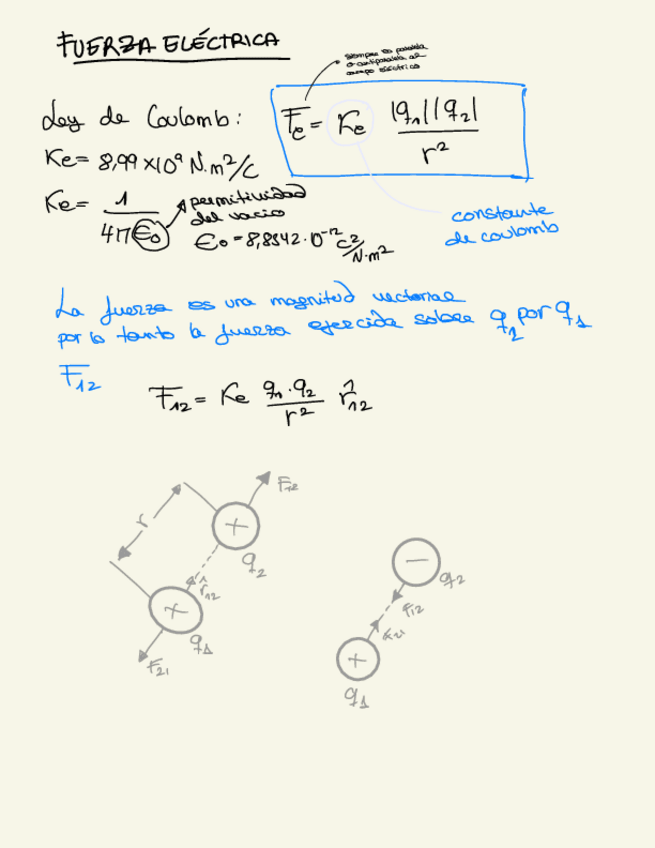 FUERZA ELÉCTRICA
siempre es paralela
o antiparalela al
campo eléctrico
Ley de Coulomb:
Fe = Ke |q1||q2| / r²
Ke = 8,99 × 10⁹ N·m²/C
Ke = 1 / 4π ε0
permitividad
del vacío
ε0 = 8,8542 · 10⁻¹² C²/N·m²
constante
de coulomb
La fuerza es una magnitud vectorial
por lo tanto la fuerza ejercida sobre q2 por q1
F12
F12 = Ke q1 · q2 / r² r̂12
F12
r
q2
r̂12
q1
F21
q2
F12
F21
q1